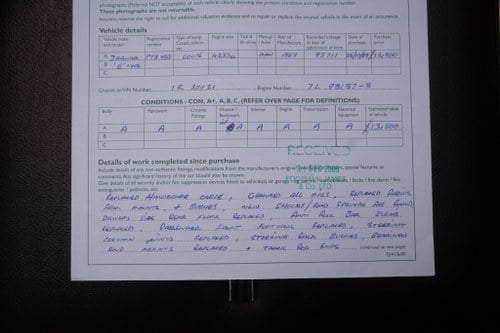 photographs (Polaroid NOT acceptable) of each vehicle clearly showing the present condition and registration number.
These photographs are not returnable.
Insurers reserve the right to call for additional valuation evidence and to repair or replace the insured vehicle in the event of an occurrence.
Vehicle details
Vehicle make and model Registration number Type of body Coupe, saloon, etc. Engine size Manual / Auto Year of Manufacture Recorded mileage at date of admission of form Date of purchase Purchase price
A JAGUAR Coupe 4235cc MAN 1969 95711 £12,500
B 'E' TYPE
C
Chassis or VIN Number: 1R 20131 Engine Number:
CONDITIONS - CON, A+, A, B, C, (REFER OVER PAGE FOR DEFINITIONS)
Body Paintwork Chrome Fittings Chassis / Bodywork Interior Engine Transmission Electrical equipment Estimated value of vehicle
A A A A A A A A A £13,500
B
C
Details of work completed since purchase
Include details of any non-authentic fittings, modifications from the manufacturer's original special features or
comments. Any significant history of the car should also be shown.
Give details of all security and/or fire suppression devices fitted to vehicle(s) or garage locks / fire alarm / fire
extinguisher / padlocks, etc.)
RECEIVED
REPLACED HANDBRAKE CABLE, CHANGED ALL OILS, REPLACED RADIUS
ARM MOUNTS + BUSHES NEW SHOCKS/ROAD SPRINGS ALL ROUND
DRIVERS SIDE REAR FLOOR REPLACED, ANTI ROLL BAR
REPLACED. PASSENGER FRONT FOOTWELL REPLACED, STEERING
COLUMN JOINTS REPLACED, STEERING RACK BUSHES, BEARINGS
AND MOUNTS REPLACED + TRACK ROD ENDS (continued on next page)